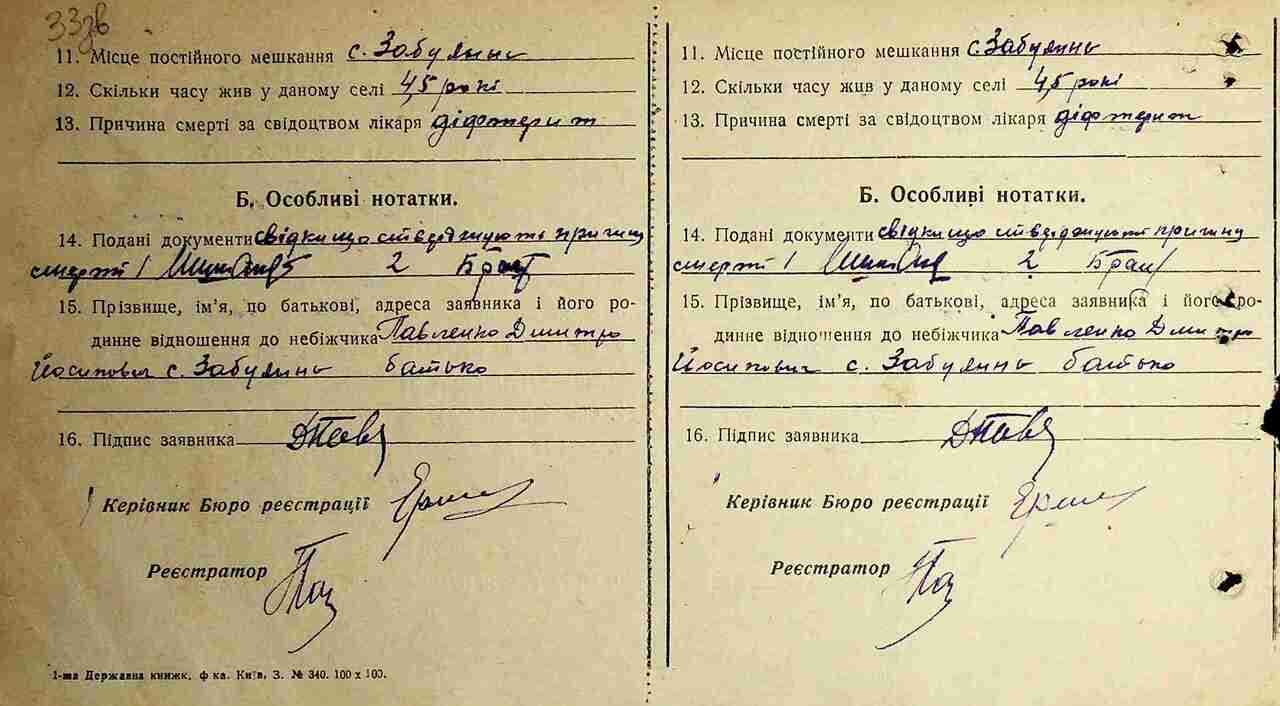 33зв
11. Місце постійного мешкання с. Забуянь
12. Скільки часу жив у даному селі 4,5 років
13. Причина смерті за свідоцтвом лікаря діфтерит
Б. Особливі нотатки.
14. Подані документи свідки що стверджують причину
смерті 1 2
15. Прізвище, ім'я, по батькові, адреса заявника і його ро-
динне відношення до небіжчика Павленко Дмитро
Йосипович с. Забуянь батько
16. Підпис заявника
Керівник Бюро реєстрації
Реєстратор
1-ша Державна книжк. ф ка. Київ, З. № 340. 100 х 100.
11. Місце постійного мешкання с. Забуянь
12. Скільки часу жив у даному селі 4,5 років
13. Причина смерті за свідоцтвом лікаря діфтерит
Б. Особливі нотатки.
14. Подані документи свідки що стверджують причину
смерті 1 2
15. Прізвище, ім'я, по батькові, адреса заявника і його ро-
динне відношення до небіжчика Павленко Дмитро
Йосипович с. Забуянь батько
16. Підпис заявника
Керівник Бюро реєстрації
Реєстратор